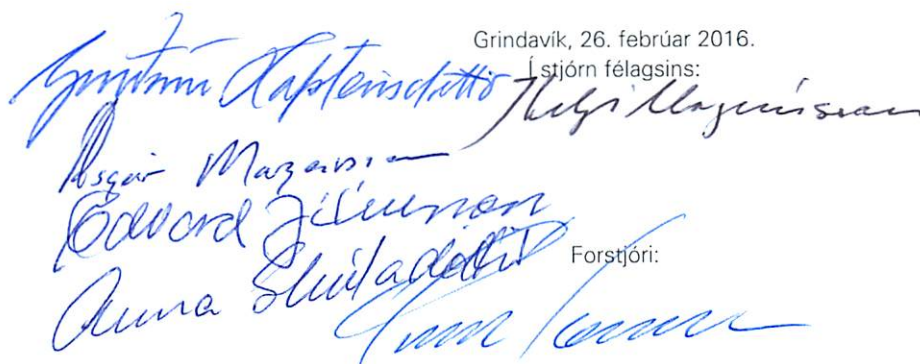 Grindavík, 26. febrúar 2016.
Í stjórn félagsins:
Helgi Magnússon
Ásgeir Magnússon
Edvard Júlíusson
Anna Skúladóttir
Forstjóri: